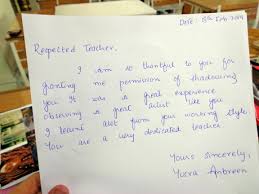 Date: 15th Feb 2019
Respected Teacher,
I am so thankful to you for
granting me permission of shadowing
you It was a great experience
observing a great artist like you
I learnt alot from your working style
You are a very dedicated teacher
Yours sincerely,
Yusra Ambreen